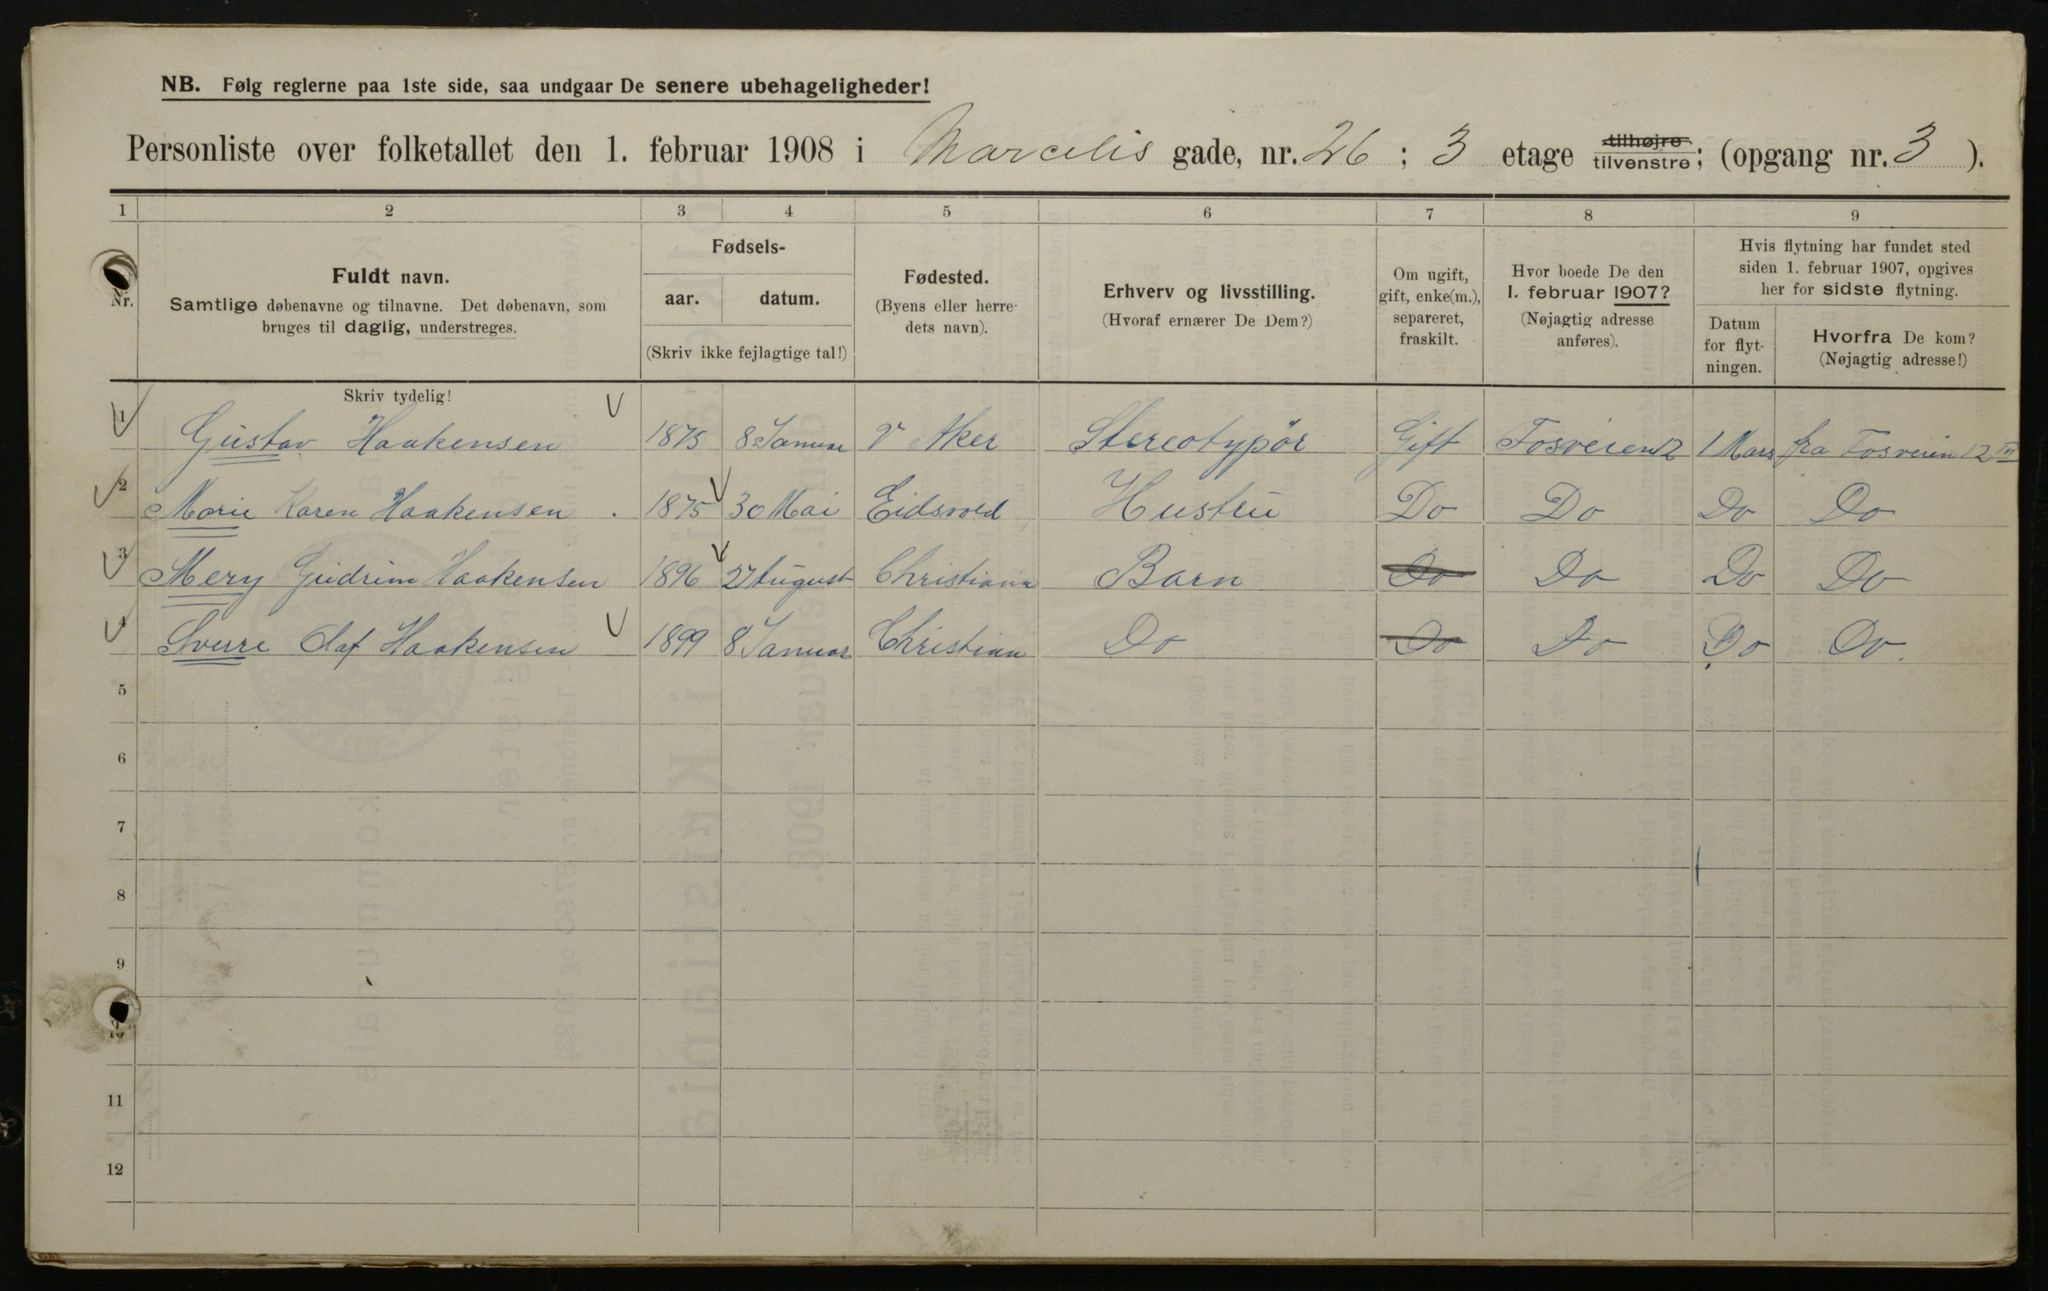 NB. Følg reglerne paa 1ste side, saa undgaar De senere ubehageligheder!
Personliste over folketallet den 1. februar 1908 i Marcelis gade, nr. 26 ; 3 etage tilhøjre tilvenstre; (opgang nr. 3 ).
1 2 3 4 5 6 7 8 9
Nr.
Fuldt navn.
Samtlige døbenavne og tilnavne. Det døbenavn, som
bruges til daglig, understreges.
Fødsels-
aar. datum.
(Skriv ikke fejlagtige tal!)
Fødested.
(Byens eller herre-
dets navn).
Erhverv og livsstilling.
(Hvoraf ernærer De Dem?)
Om ugift,
gift, enke(m.),
separeret,
fraskilt.
Hvor boede De den
1. februar 1907?
(Nøjagtig adresse
anføres).
Hvis flytning har fundet sted
siden 1. februar 1907, opgives
her for sidste flytning.
Datum
for flyt-
ningen.
Hvorfra De kom?
(Nøjagtig adresse!)
Skriv tydelig!
1 Gustav Haakensen 1875 8 Januar V Aker Stereotypør Gift Fosveien 12 1 Mars fra Fosveien 12 III
2 Marie Karen Haakensen 1875 30 Mai Eidsvold Hustru Do Do Do Do
3 Mery Gudrun Haakensen 1896 27 August Christiana Barn Do Do Do Do
4 Sverre Olaf Haakensen 1899 8 Januar Christian Do Do Do Do Do
5
6
7
8
9
10
11
12